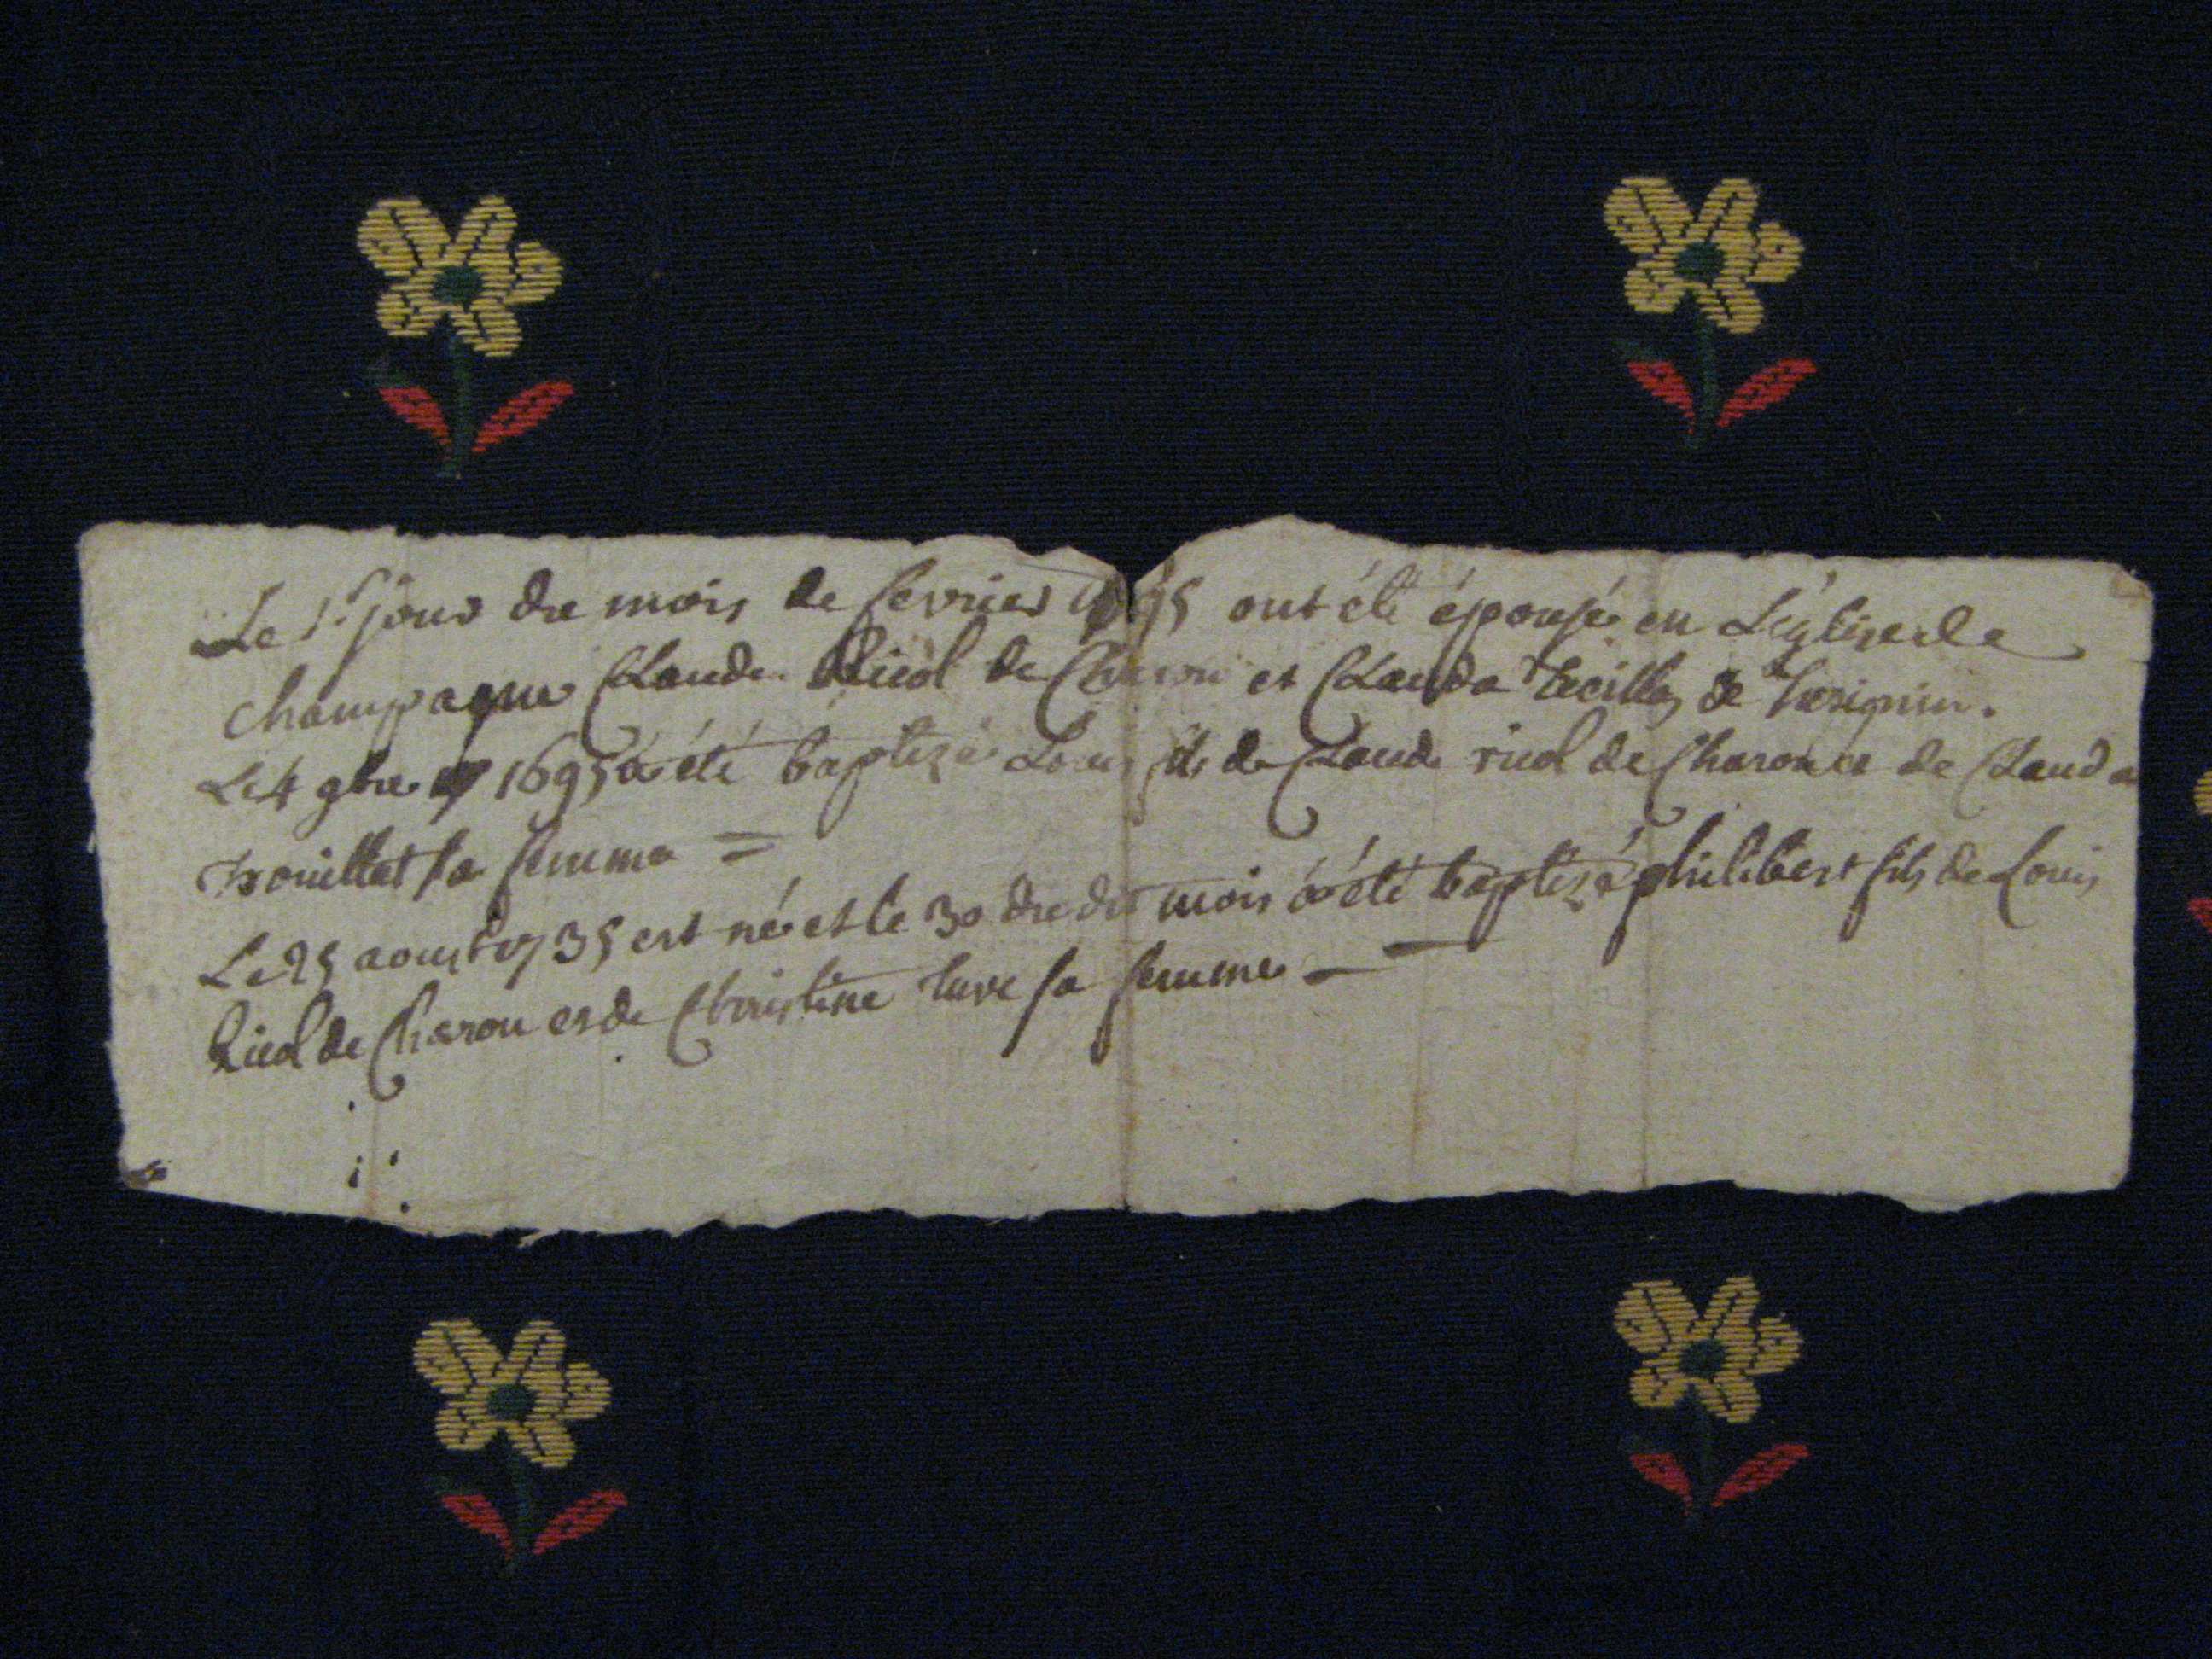 Le 1.r jour du mois de fevrier ont été épousé en L'églize de
Champagne Claude Riod de Charon et Clauda de
Le 4 9bre 1695 a été baptizé Louis fils de Claude riod de Charon et de Clauda
trouillet sa femme =
Le 25 aoust 1735 est né et le 30 du dit mois a été baptizé philibert fils de Louis
Riod de Charon et de Christine sa femme — —